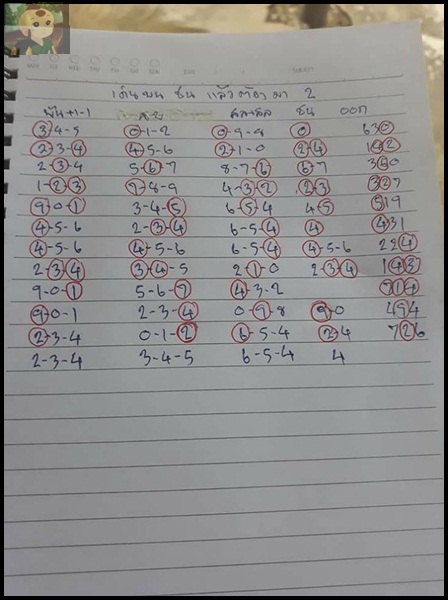 เด่นบน ชน แล้วต้องมา 2
พัน+1-1 ชน ออก
3-4-5 0-1-2 0-9-8 0 630
2-3-4 4-5-6 2-1-0 2 4
2-3-4 5-6-7 8-7-6 6-7 360
1-2-3 7-8-9 4-3-2 2 3 327
9-0-1 3-4-5 6-5-4 4 5 519
4-5-6 2-3-4 6-5-4 4 431
4-5-6 4-5-6 6-5-4 4-5-6 224
2-3-4 3-4-5 2-1-0 2-3-4 143
9-0-1 5-6-7 4-3-2 714
9-0-1 2-3-4 0-9-8 9-0 494
2-3-4 0-1-2 6-5-4 2 4 726
2-3-4 3-4-5 6-5-4 4